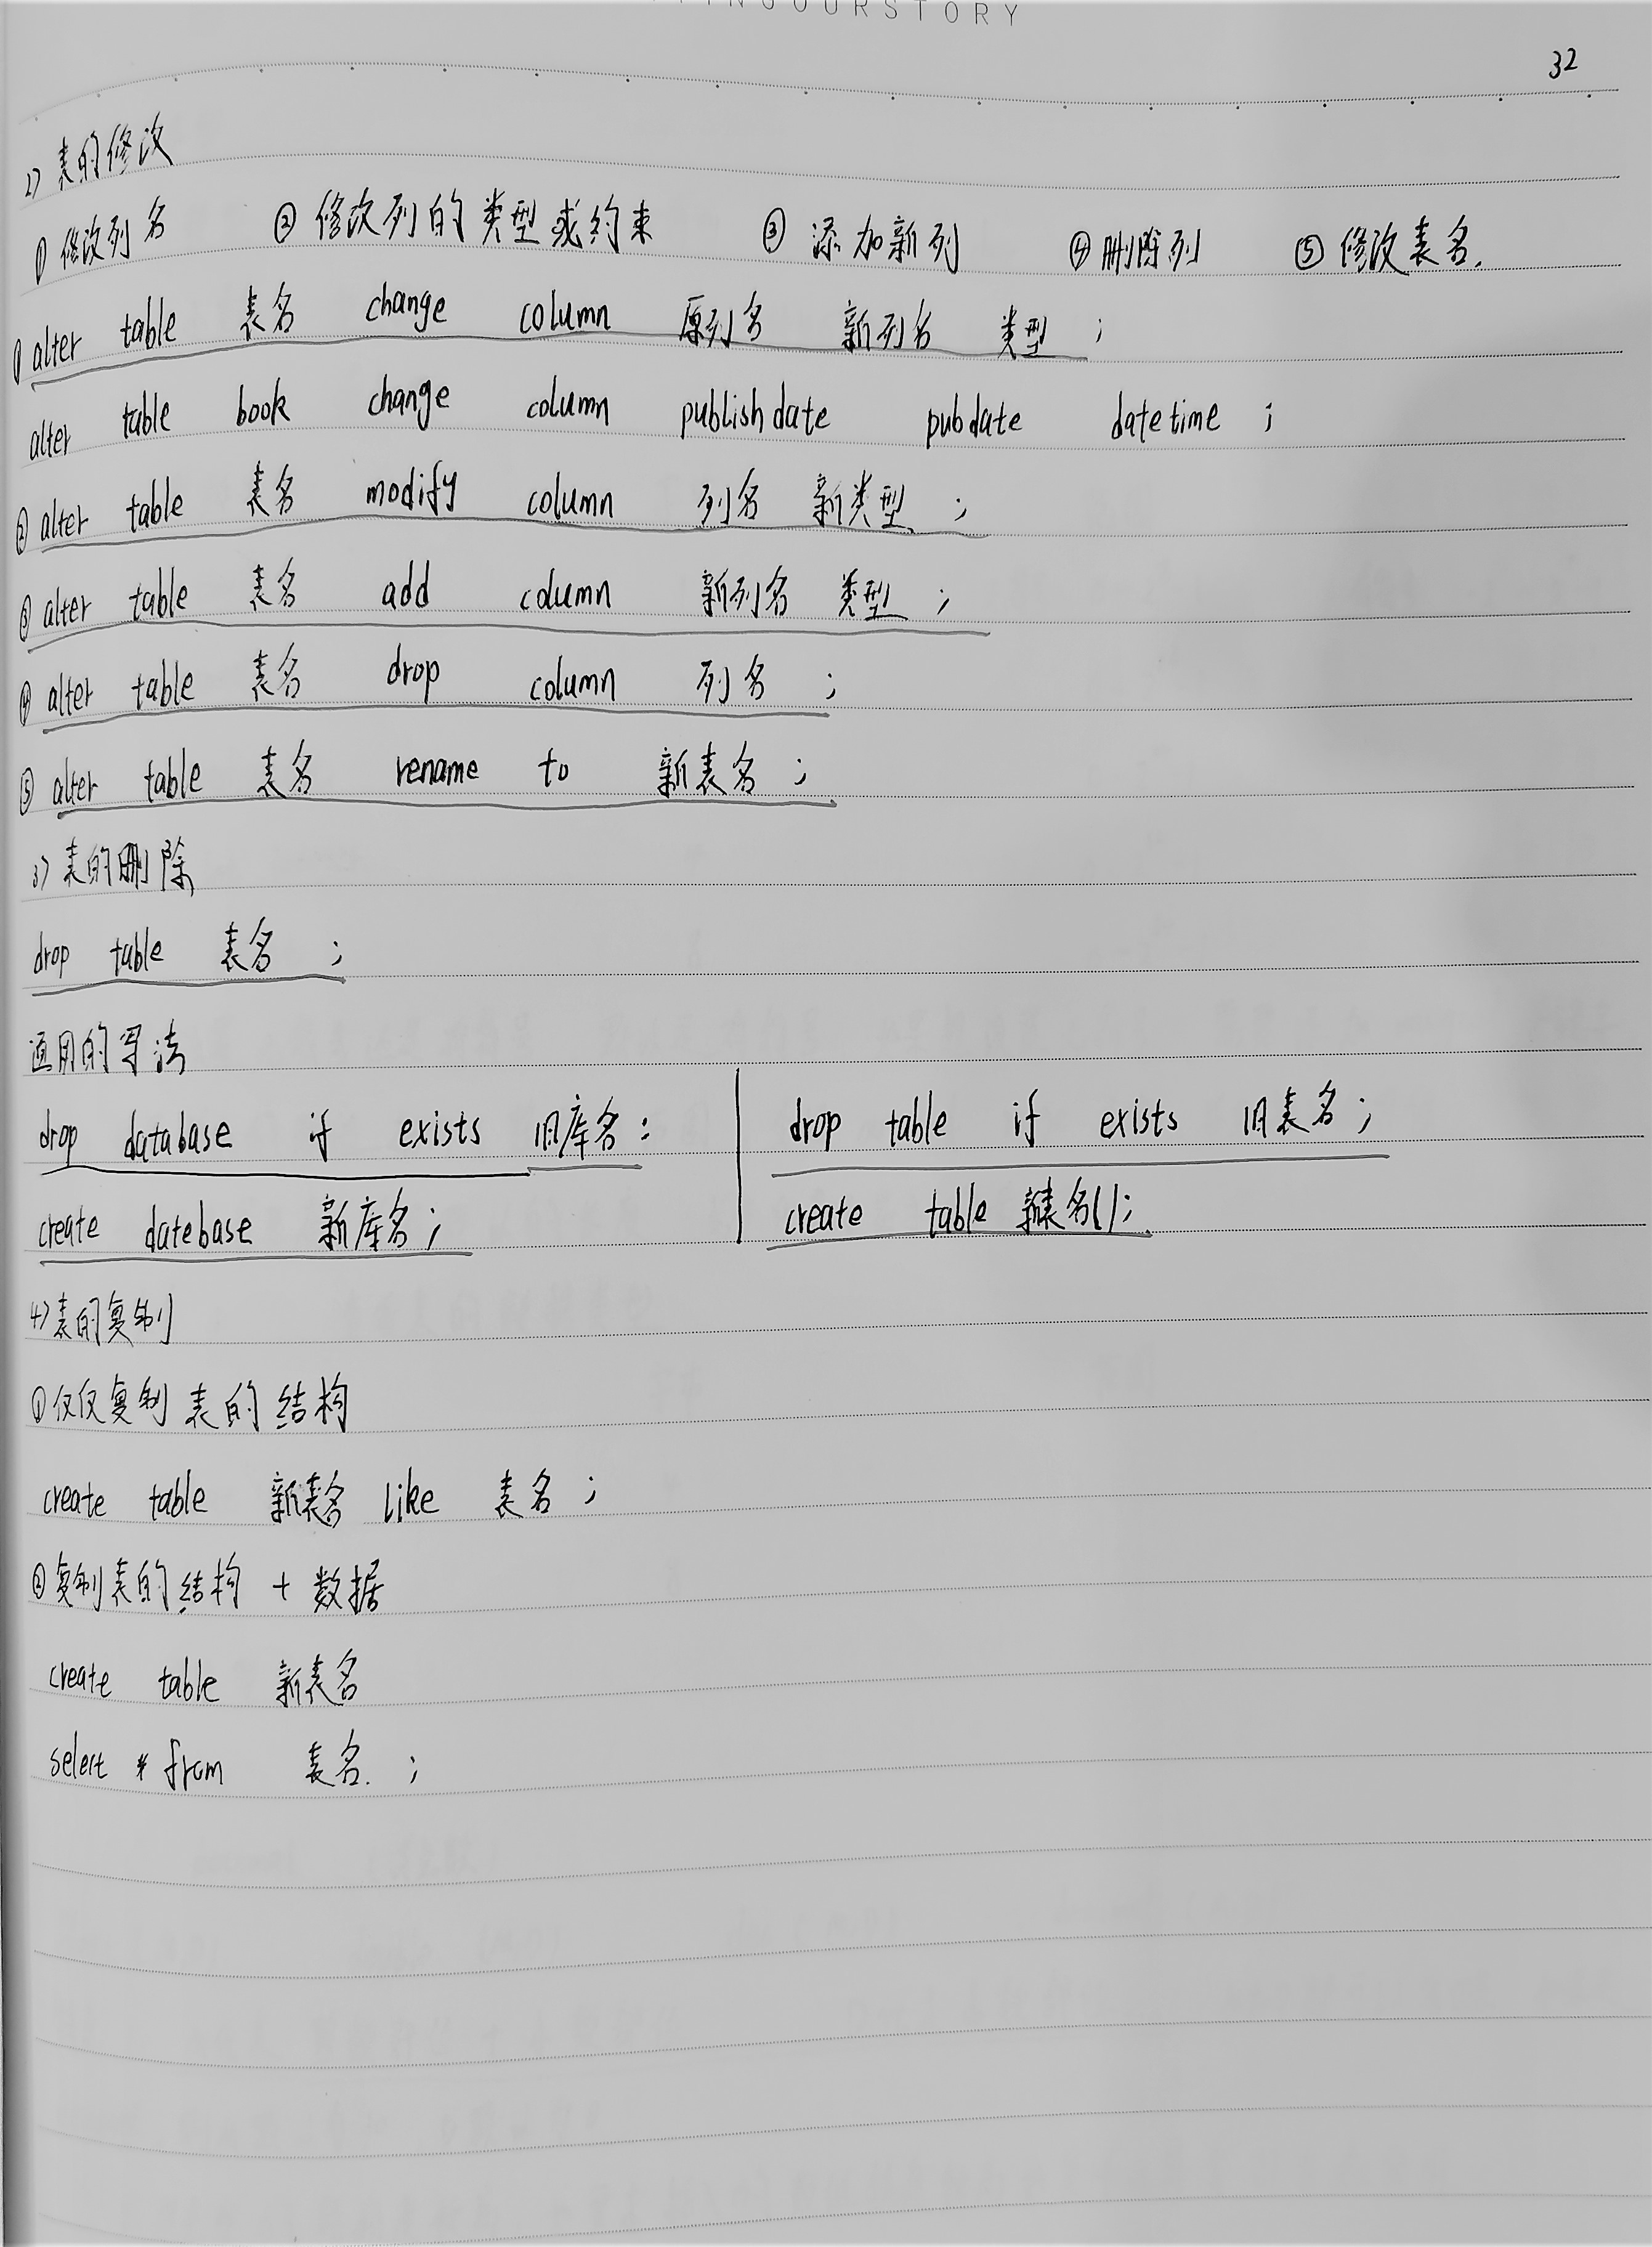 INGOURSTORY
32
2) 表的修改
① 修改列名 ② 修改列的类型或约束 ③ 添加新列 ④ 删除列 ⑤ 修改表名.
① alter table 表名 change column 原列名 新列名 类型 ;
alter table book change column publishdate pubdate datetime ;
② alter table 表名 modify column 列名 新类型 ;
③ alter table 表名 add column 新列名 类型 ;
④ alter table 表名 drop column 列名 ;
⑤ alter table 表名 rename to 新表名 ;
3) 表的删除
drop table 表名 ;
通用的写法
drop database if exists 旧库名 ; drop table if exists 旧表名 ;
create datebase 新库名 ; create table 新表名();
4) 表的复制
① 仅仅复制表的结构
create table 新表名 like 表名 ;
② 复制表的结构 + 数据
create table 新表名
select * from 表名. ;